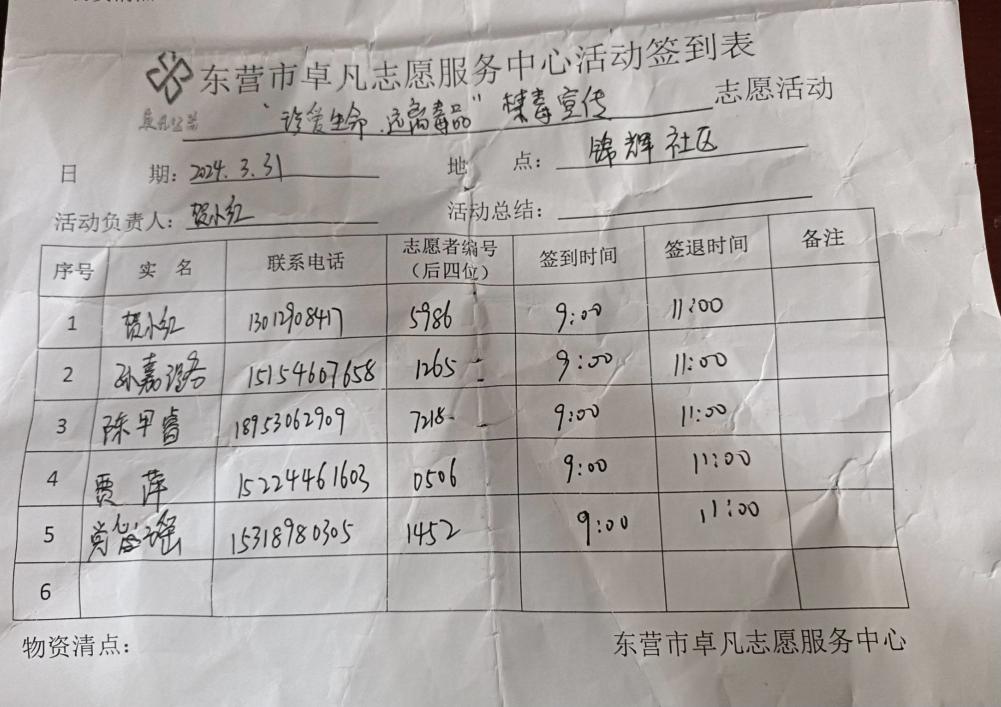 东营市卓凡志愿服务中心活动签到表
"珍爱生命,远离毒品"禁毒宣传 志愿活动
日 期: 2024.3.31 地 点: 锦辉社区
活动负责人: 贺小红 活动总结:
序号 实 名 联系电话 志愿者编号(后四位) 签到时间 签退时间 备注
1 贺小红 13012908417 5986 9:00 11:00
2 孙嘉 15154607658 1265 9:00 11:00
3 陈早睿 18953062909 7218 9:00 11:00
4 贾萍 15224461603 0506 9:00 11:00
5 瑶 15318980305 1452 9:00 11:00
6
物资清点: 东营市卓凡志愿服务中心